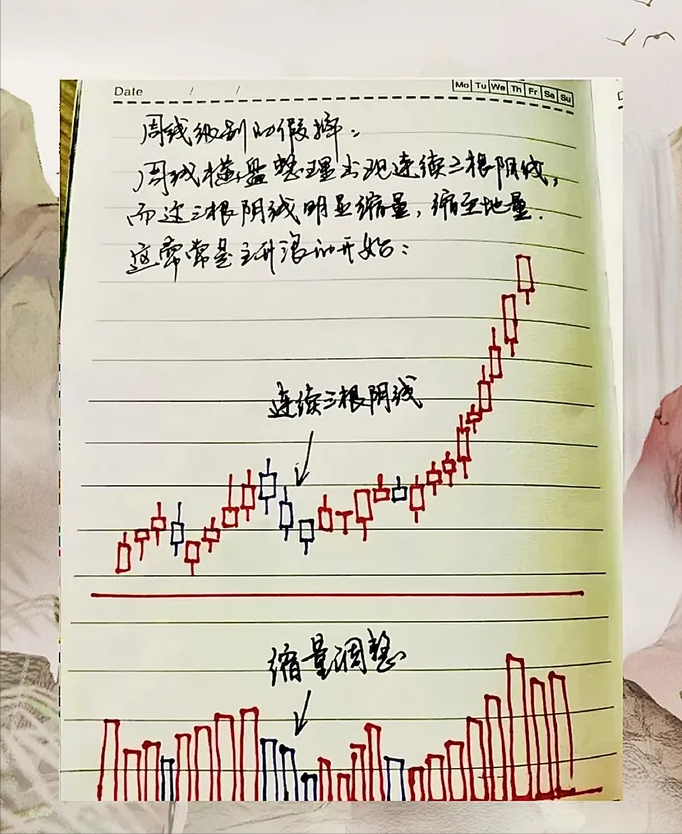 Date / /
Mo Tu We Th Fr Sa Su
周线级别的假摔。
周线横盘整理出现连续三根阴线,
而这三根阴线明显缩量,缩至地量.
这常常是主升浪的开始:
连续三根阴线
缩量调整